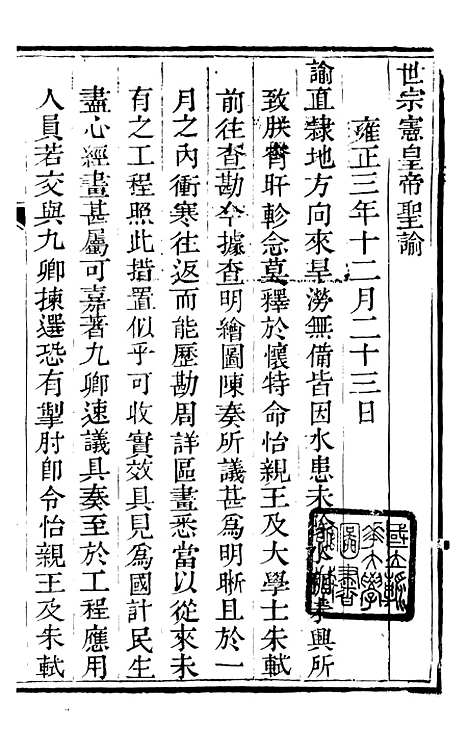 世宗憲皇帝聖諭
雍正三年十二月二十三日
諭直隸地方向來旱澇無備皆因水患未除水利未興所
致朕宵旰軫念莫釋於懷特命怡親王及大學士朱軾
前往查勘今據查明繪圖陳奏所議甚為明晰且於一
月之內衝寒往返而能歷勘周詳區畫悉當以從來未
有之工程照此措置似乎可收實效具見為國計民生
盡心經畫甚屬可嘉著九卿速議具奏至於工程應用
人員若交與九卿揀選恐有掣肘即令怡親王及朱軾